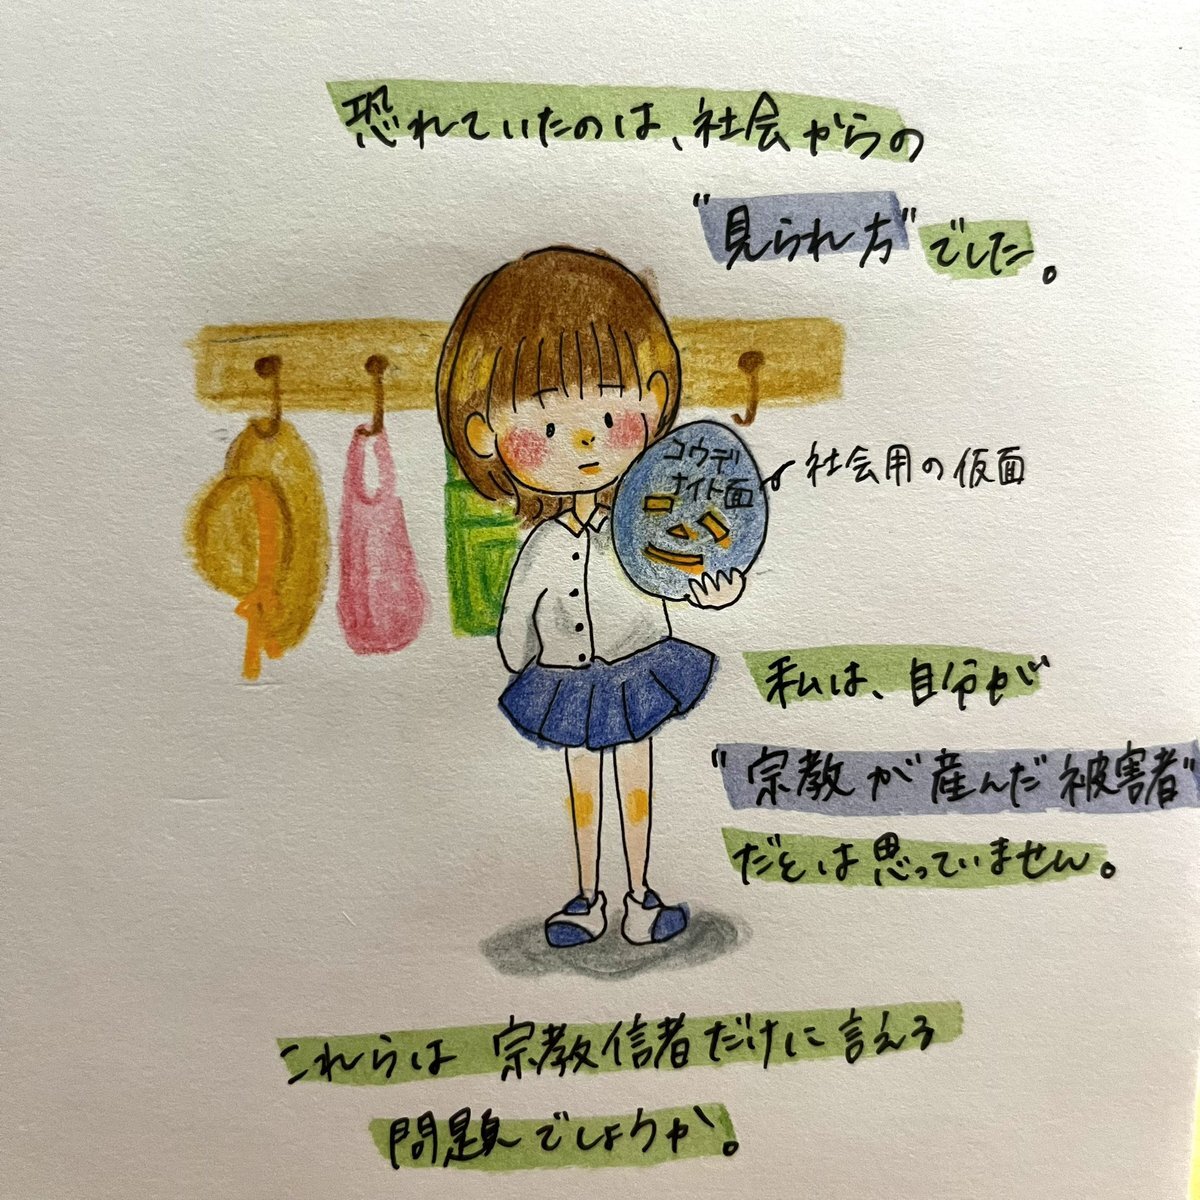 恐れていたのは、社会からの
"見られ方"でした。
コウデ
ナイト面
社会用の仮面
私は、自分が
"宗教が産んだ被害者"
だとは思っていません。
これらは宗教信者だけに言える
問題でしょうか。